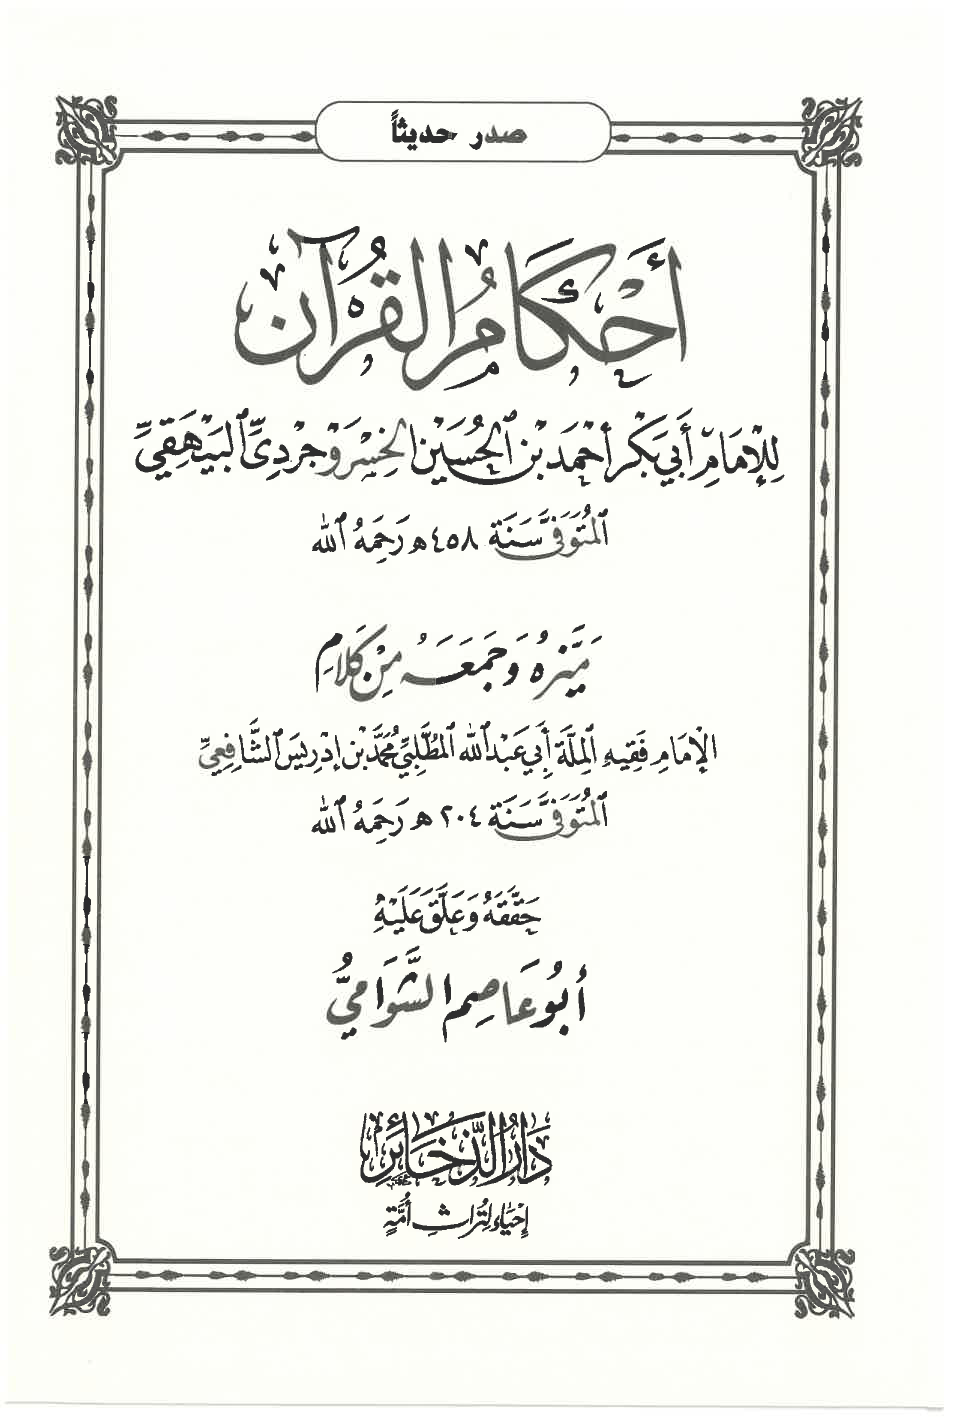 صدر حديثاً
أَحْكَامُ الْقُرْآنِ
لِلْإِمَامِ أَبِي بَكْر أَحْمَد بْن الْحُسَيْن الْخِسْرَوْجِرْدِيِّ الْبَيْهَقِيِّ
الْمُتَوَفَّى سَنَة ٤٥٨ هـ رَحِمَهُ اللَّه
مَيَّزهُ وَجَمَعَهُ مِنْ كَلَامِ
الْإِمَامِ فَقِيهِ الْمِلَّة أَبِي عَبْد اللَّه الْمُطَّلِبِيِّ مُحَمَّد بْن إِدْرِيسَ الشَّافِعِيِّ
الْمُتَوَفَّى سَنَة ٢٠٤ هـ رَحِمَهُ اللَّه
حَقَّقَهُ وَعَلَّقَ عَلَيْهِ
أَبُو عَاصِم الشَّوَامِيُّ
دَارُ الذَّخَائِر
إِحْيَاء لِتُرَاثِ أُمَّةٍ